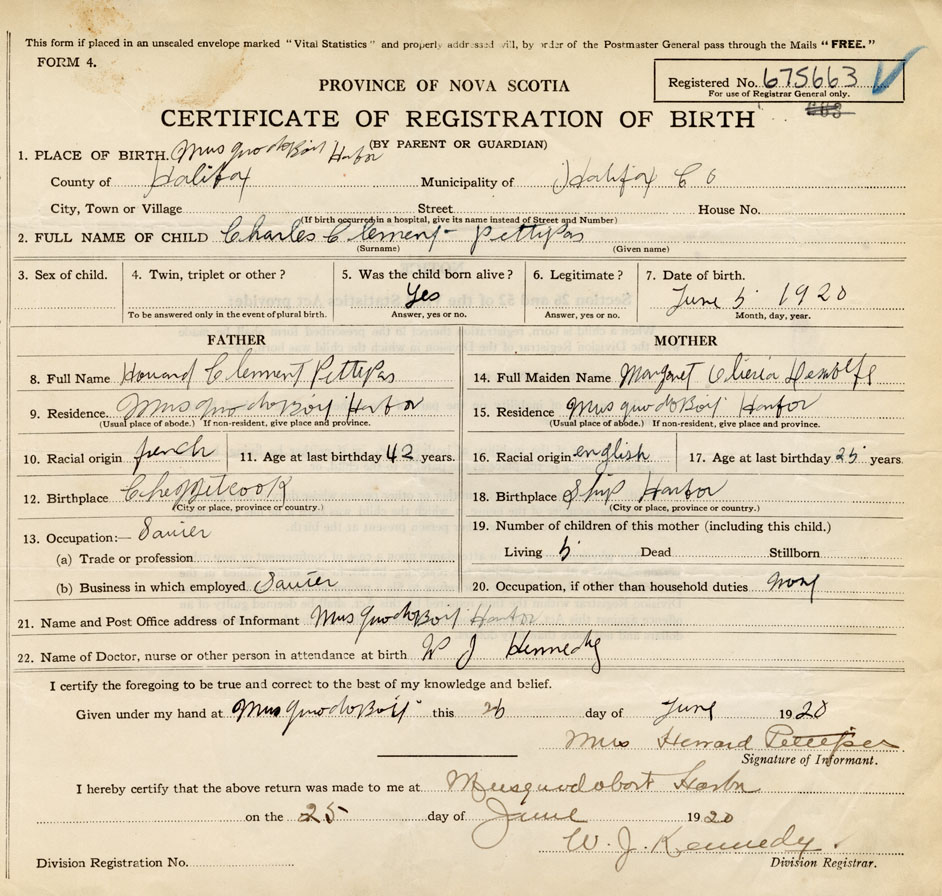 This form if placed in an unsealed envelope marked "Vital Statistics" and properly addressed will, by order of the Postmaster General pass through the Mails "FREE."
FORM 4.
Registered No. 675663
For use of Registrar General only.
PROVINCE OF NOVA SCOTIA
CERTIFICATE OF REGISTRATION OF BIRTH
(BY PARENT OR GUARDIAN)
1. PLACE OF BIRTH. MusquodoBoit Harbor
County of Halifax Municipality of Halifax Co
City, Town or Village Street House No.
(If birth occurred in a hospital, give its name instead of Street and Number)
2. FULL NAME OF CHILD Charles Clement Pettipas
(Surname) (Given name)
3. Sex of child. 4. Twin, triplet or other? 5. Was the child born alive? 6. Legitimate? 7. Date of birth.
Yes June 5 1920
To be answered only in the event of plural birth. Answer, yes or no. Answer, yes or no. Month, day, year.
FATHER MOTHER
8. Full Name Howard Clement Pettipas 14. Full Maiden Name Margaret
9. Residence. MusquodoBoit Harbor 15. Residence MusquodoBoit Harbor
(Usual place of abode.) If non-resident, give place and province. (Usual place of abode.) If non-resident, give place and province.
10. Racial origin french 11. Age at last birthday 42 years. 16. Racial origin english 17. Age at last birthday 25 years.
12. Birthplace Chezzetcook 18. Birthplace Ship Harbor
(City or place, province or country.) (City or place, province or country.)
13. Occupation:— 19. Number of children of this mother (including this child.)
(a) Trade or profession Living 5 Dead Stillborn
(b) Business in which employed 20. Occupation, if other than household duties none
21. Name and Post Office address of Informant MusquodoBoit Harbor
22. Name of Doctor, nurse or other person in attendance at birth W J Kennedy
I certify the foregoing to be true and correct to the best of my knowledge and belief.
Given under my hand at MusquodoBoit this 26 day of June 1920
Mrs Howard Pettipas
Signature of Informant.
I hereby certify that the above return was made to me at Musquodoboit Harbor
on the 25 day of June 1920
W. J. Kennedy.
Division Registration No. Division Registrar.